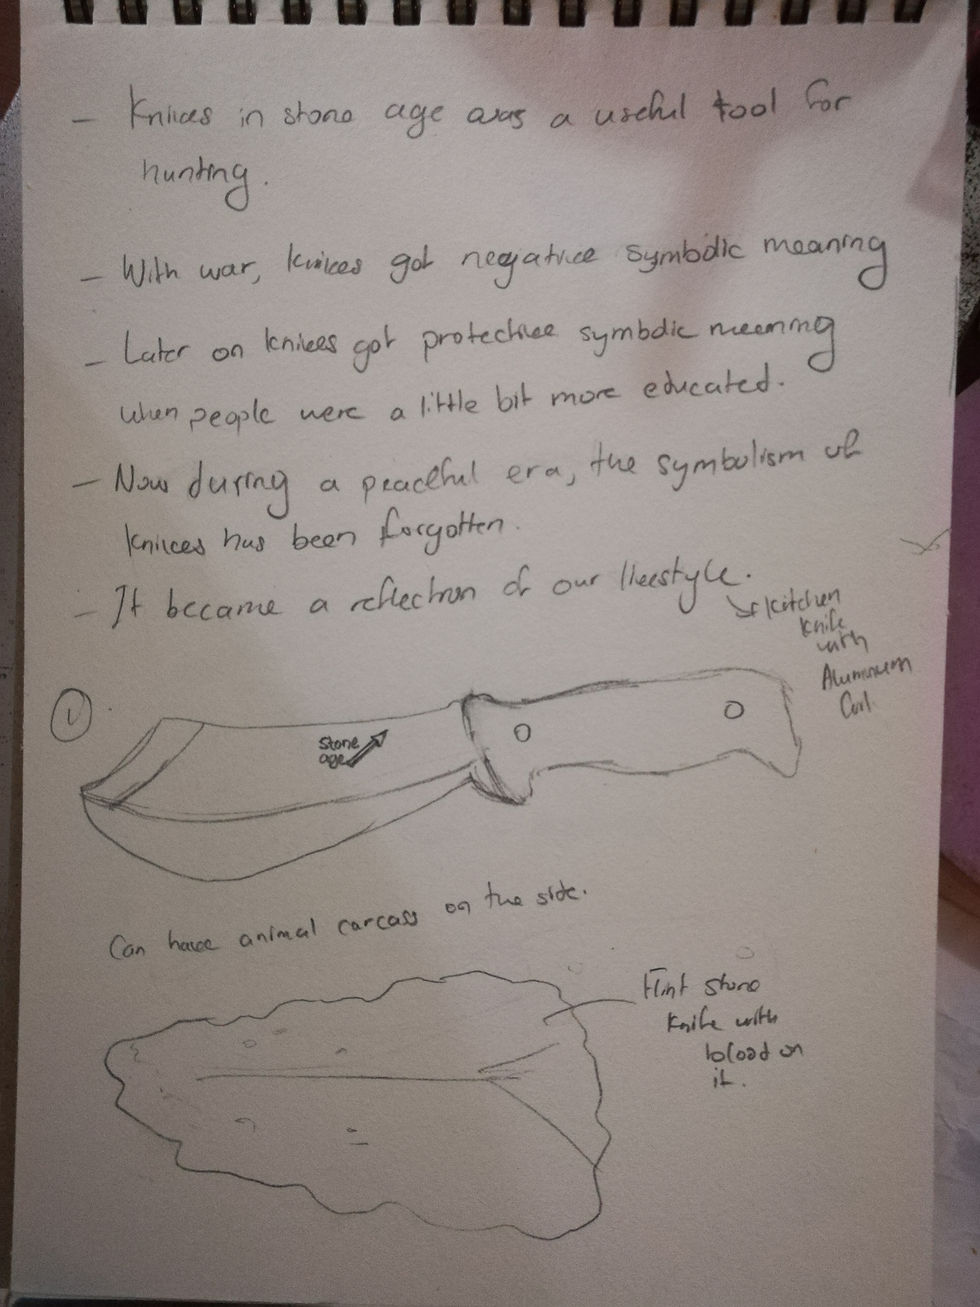 - Knives in stone age was a useful tool for
hunting.
- With war, knives got negative symbolic meaning
- Later on knives got protective symbolic meaning
when people were a little bit more educated.
- Now during a peaceful era, the symbolism of
knives has been forgotten.
- It became a reflection of our lifestyle.
kitchen
knife
with
Aluminum
1
Stone
age
Can have animal carcass on the side.
Flint stone
knife with
blood on
it.